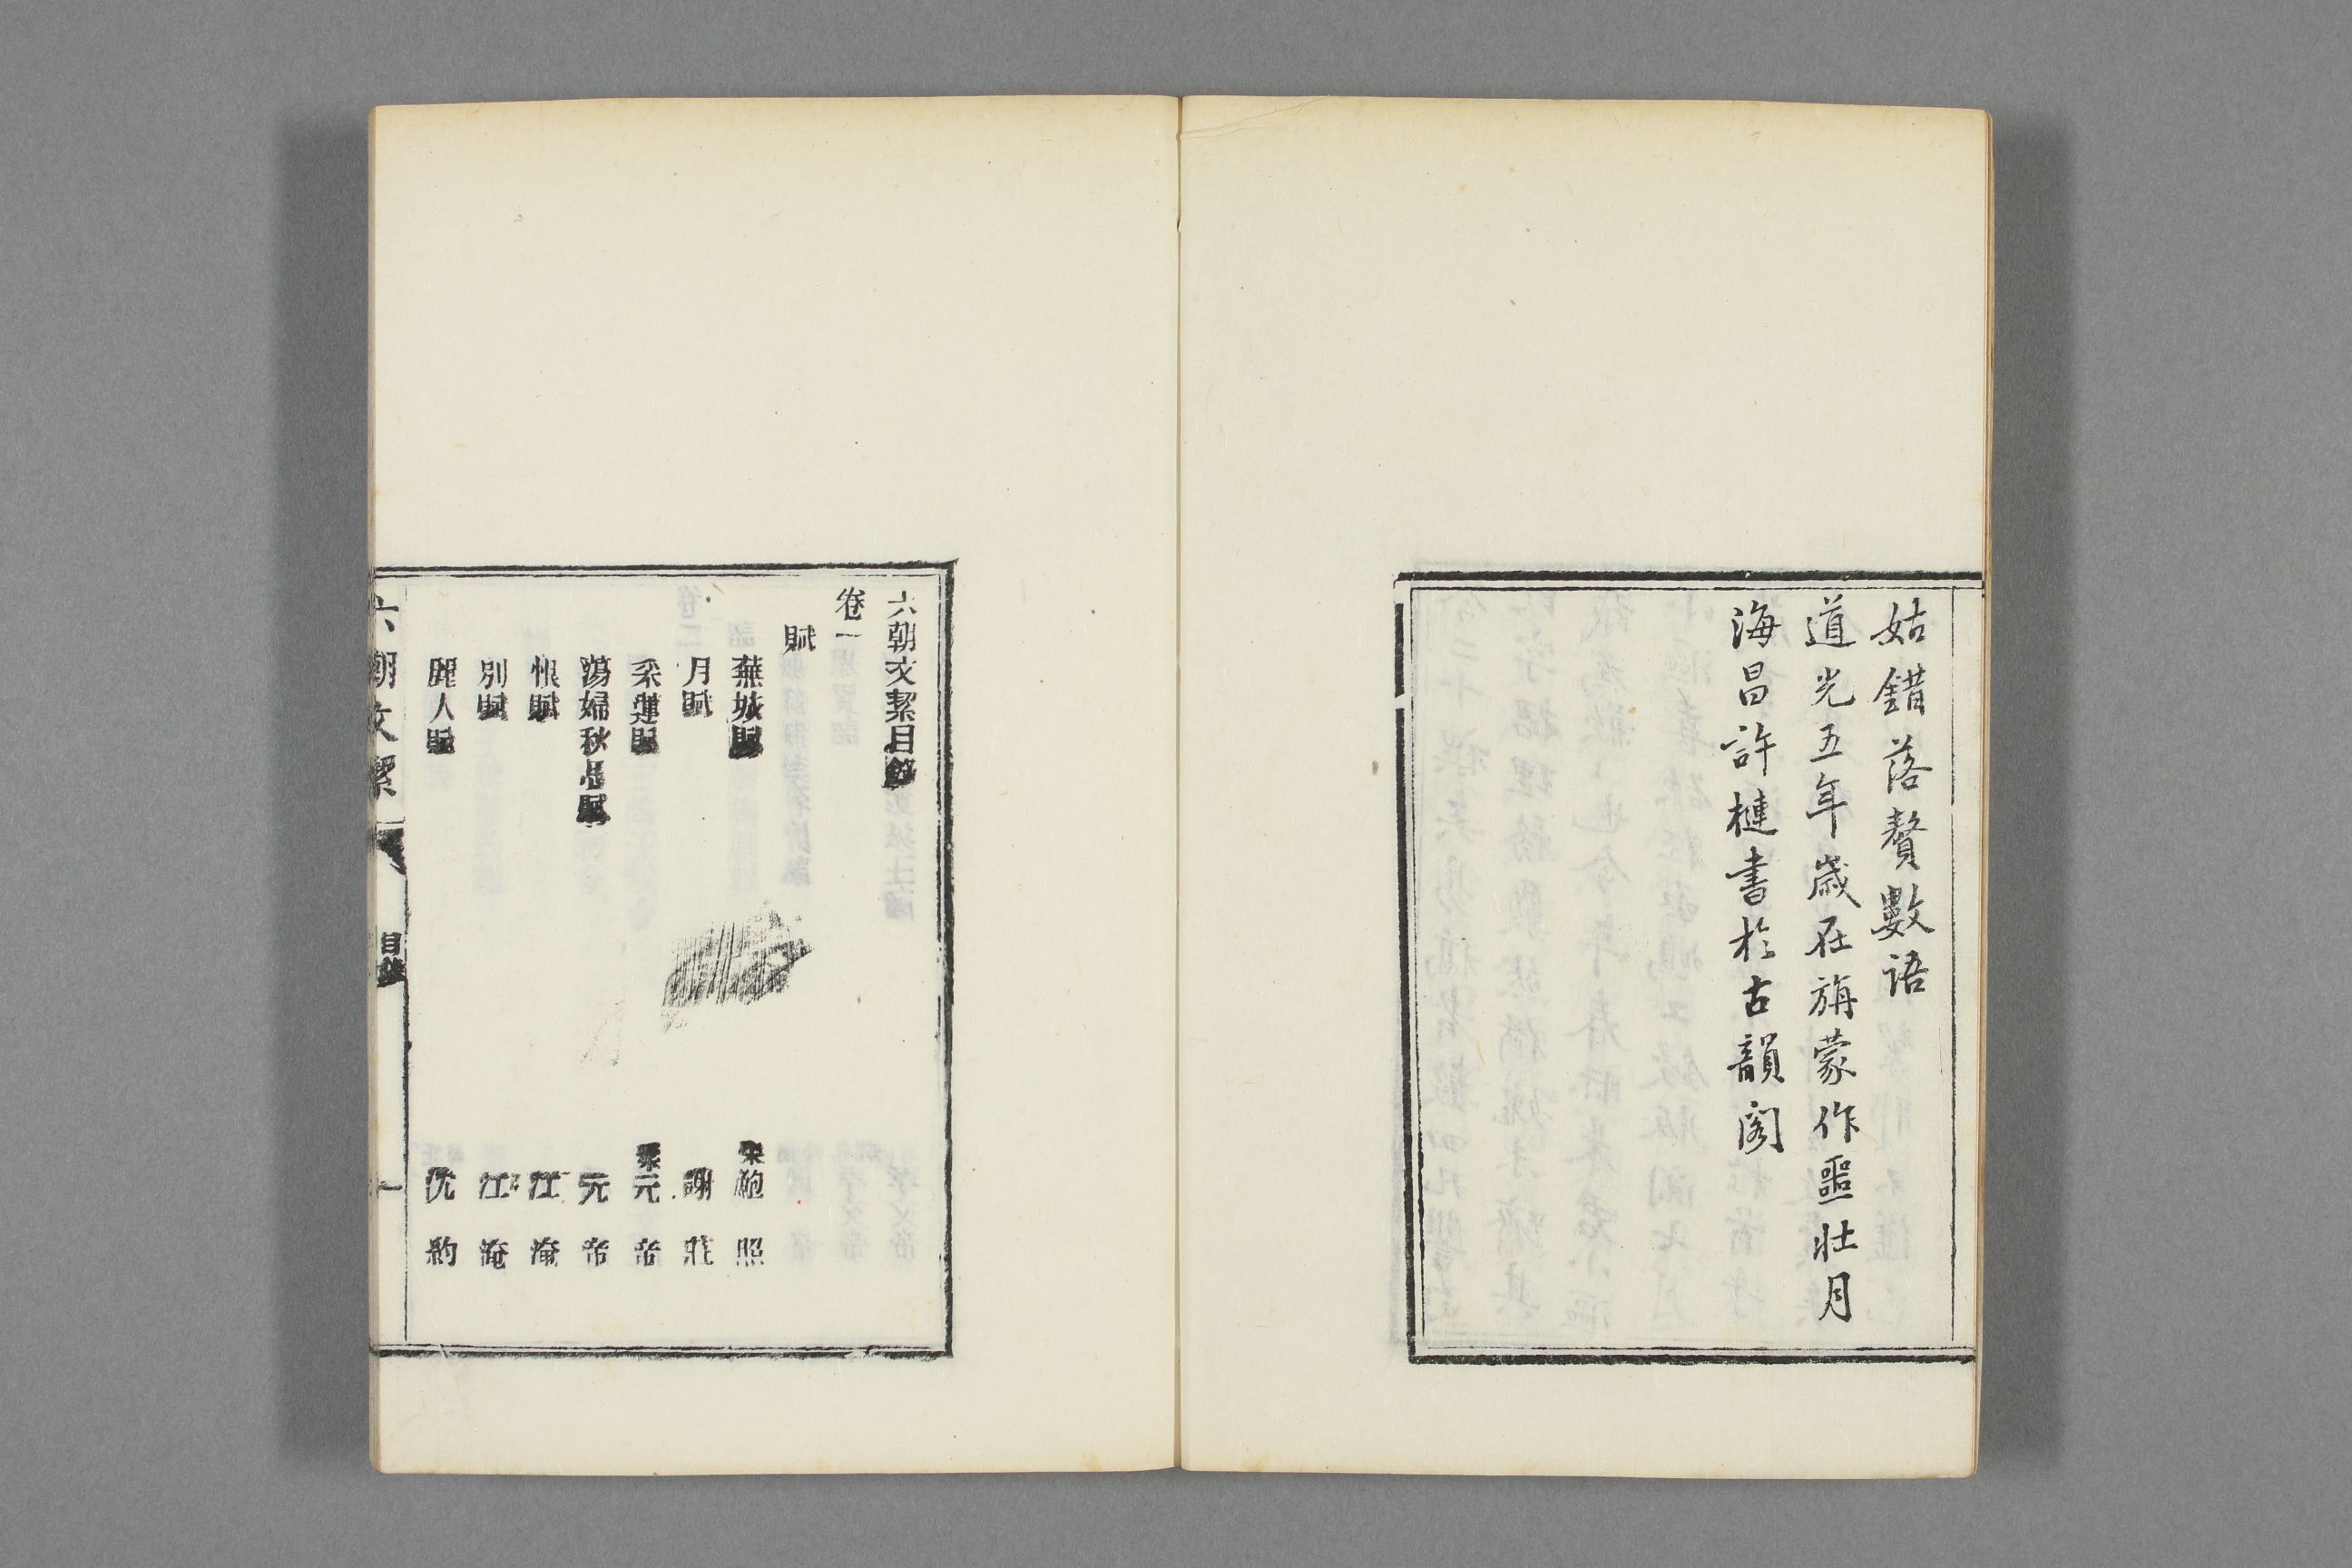 姑錯落贅數語
道光五年歲在旃蒙作噩壯月
海昌許槤書於古韻閣
六朝文絜目錄
卷一
賦
蕪城賦 宋鮑照
月賦 謝莊
采蓮賦 梁元帝
蕩婦秋思賦 元帝
恨賦 江淹
別賦 江淹
麗人賦 沈約
六朝文絜 目錄 一